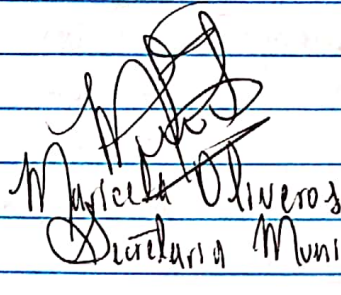 Maricela Oliveros
Secretaria Muni